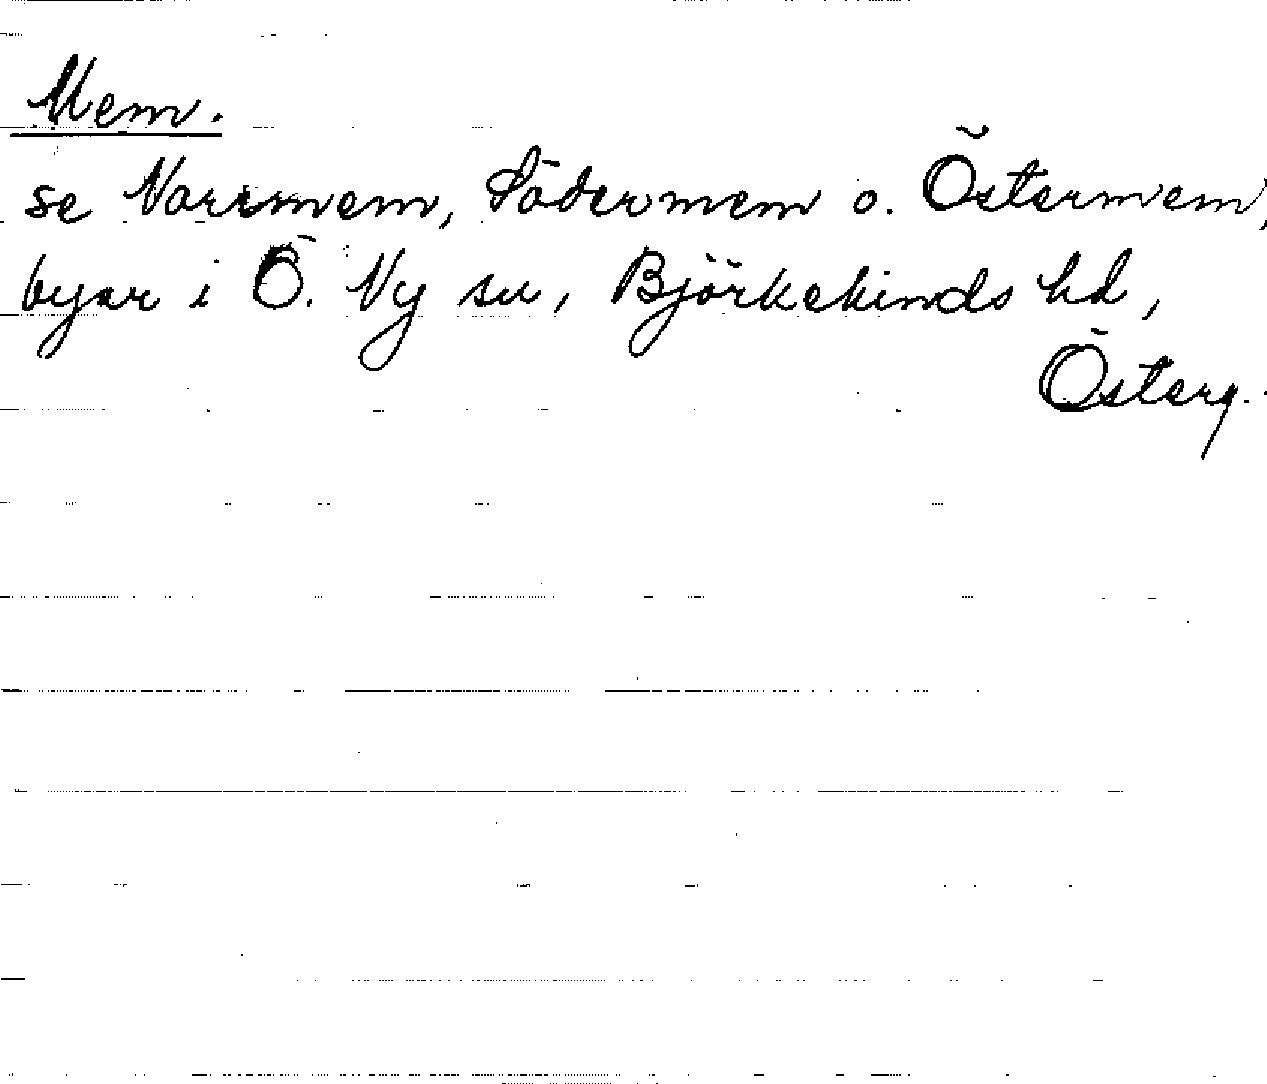 Mem.
se Norrmem, Södermem o. Östermem,
byar i Ö. Ny sn, Björkekinds hd,
Österg.